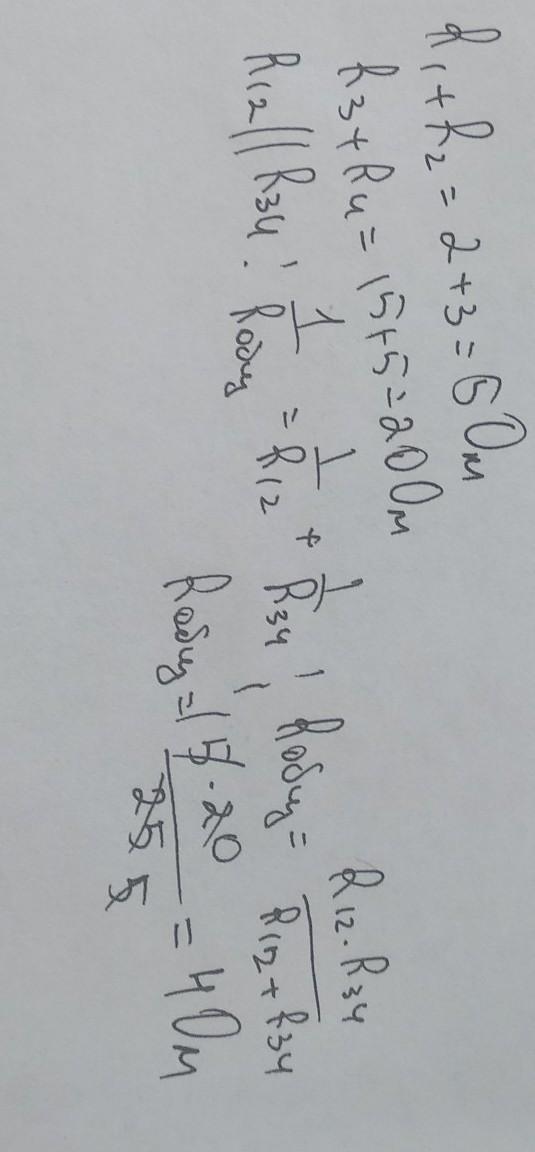 R₁ + R₂ = 2 + 3 = 5 Ом
R₃ + R₄ = 15 + 5 = 20 Ом
R₁₂ || R₃₄ : 1/Rобщ = 1/R₁₂ + 1/R₃₄ ; Rобщ = R₁₂ · R₃₄ / R₁₂ + R₃₄
Rобщ = 5 · 20 / 25 = 4 Ом